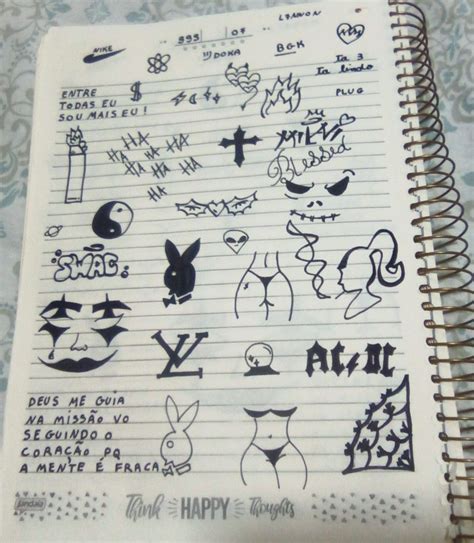 NIKE
999
07
L7NNON
DOKA
BGK
ta 3
ta lindo
ENTRE
TODAS EU
SOU MAIS EU!
$
PLUG
HA
HA HA
HA HA HA
HA HA
Blessed
SWAG
LV
AC/DC
DEUS ME GUIA
NA MISSÃO VO
SEGUINDO O
CORAÇÃO PQ
A MENTE É FRACA
Think HAPPY Thoughts